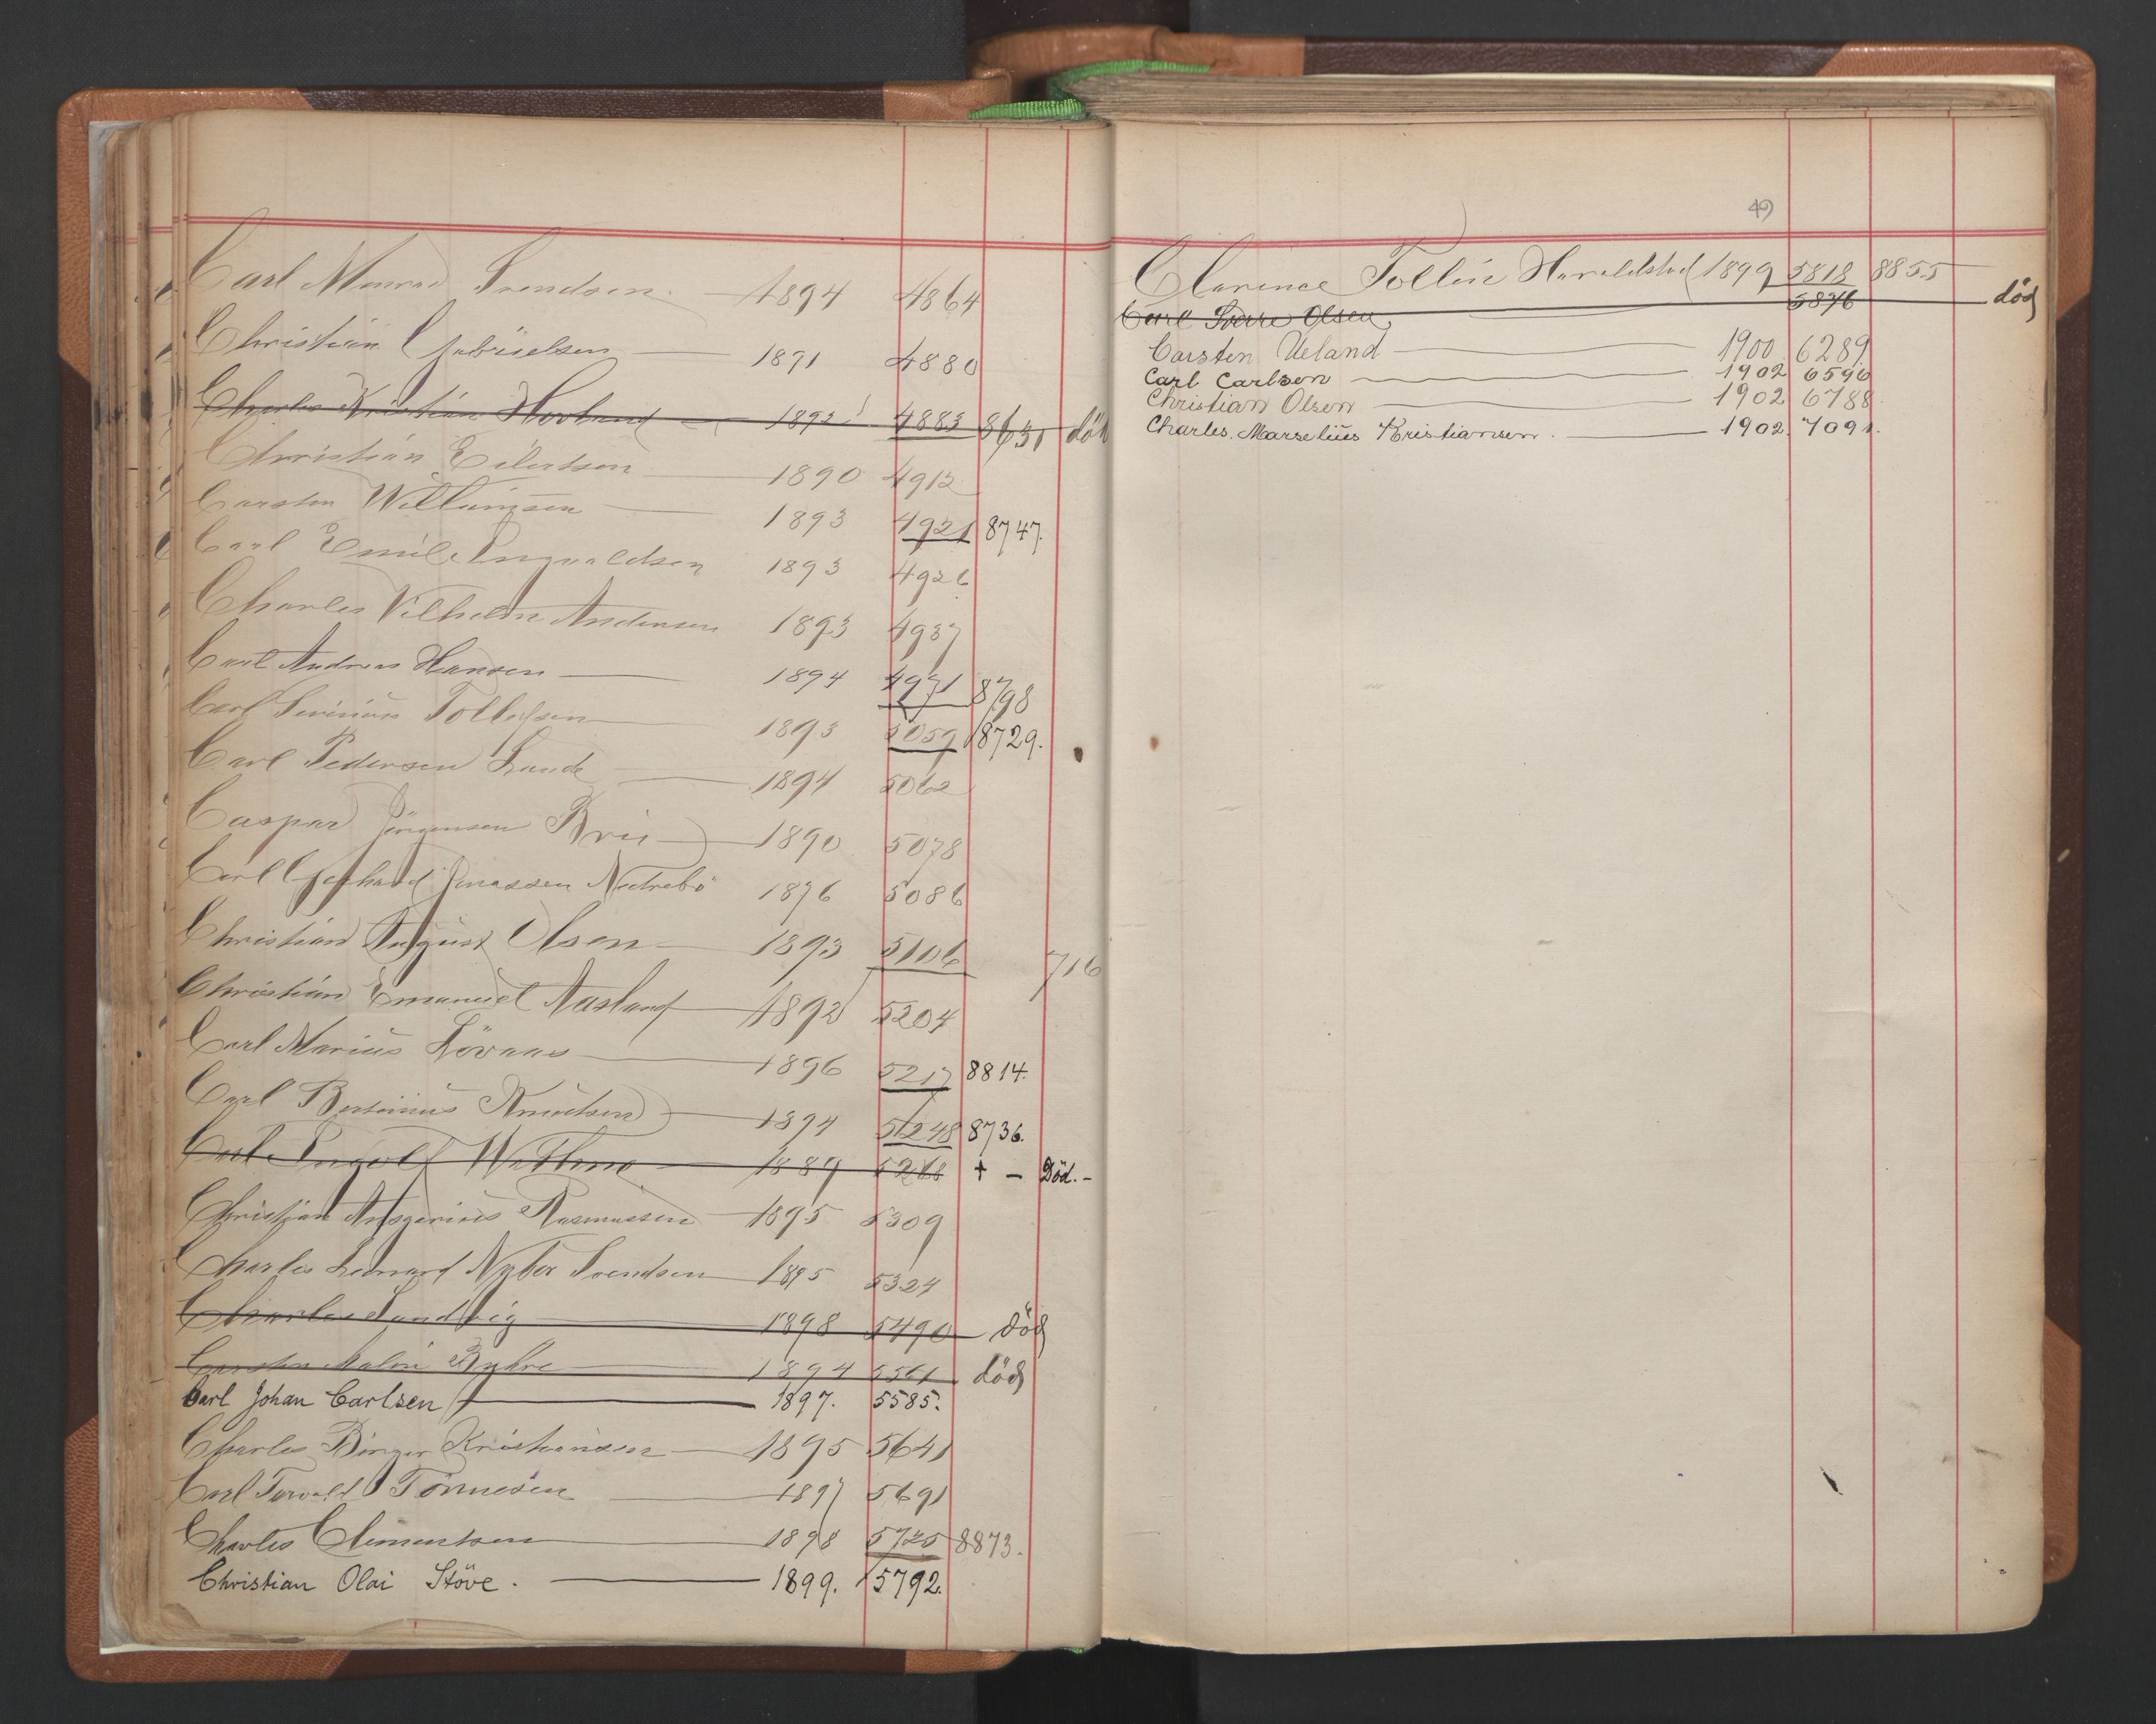 Carl Monrad Svendsen 1894 4864
Christian Gabrielsen 1891 4880
Charles Kristian Hovland 1892 4883 8631 död
Christian Eilertsen 1890 4912
Carsten Willumsen 1893 4921 8747.
Carl Emil Ingvaldsen 1893 4926
Charles Vilhelm Andersen 1893 4937
Carl Andreas Hansen 1894 4971 8798
Carl Severinus Tollefsen 1893 5059 8729.
Carl Pedersen Lunde 1894 5062
Caspar Jörgensen Brii 1890 5078
Carl Gerhard Jonassen Nedrebö 1896 5086
Christian August Olsen 1893 5106 716
Christian Emanuel Aasland 1892 5204
Carl Marius Lövaas 1896 5217 8814.
Carl Bertinius Knudsen 1894 5248 8736.
Carl Ingolf Wathne 1889 5268 + - Död.-
Christian Ansgarius Rasmussen 1895 5309
Charles Leonard Nyber Svendsen 1895 5324
Charles Sundvig 1898 5490 död
Carsten Malvin Rykre 1894 5561 död
Carl Johan Carlsen 1897. 5585.
Charles Birger Kristiansen 1895 5641
Carl Torvald Tönnesen 1897 5691
Charles Clementsen 1898 5725 8873.
Christian Olai Stöve. 1899. 5792.
49
Clarence Tollin Haraldstad 1899 5818 8855
Carl Sverre Olsen 5876 död
Carsten Ueland 1900 6289.
Carl Carlsen 1902 6596
Christian Olsen 1902 6788.
Charles. Marselius Kristiansen. 1902. 7091.